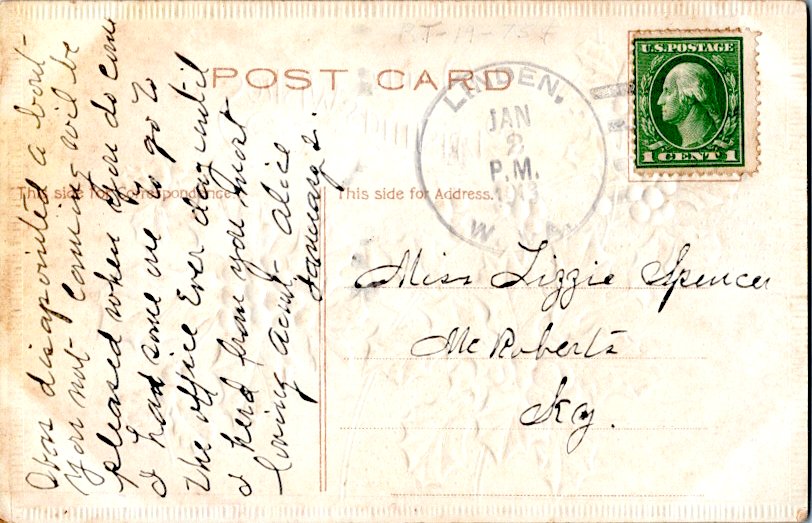 BJ-19-75¢
POST CARD
U.S. POSTAGE
1 CENT 1
LINDEN,
JAN
2
P.M.
1913
W. VA.
This side for Correspondence.
This side for Address.
Miss Lizzie Spencer
McRoberts
Ky.
Was disapointed a bout
you not coming will be
pleased when you do come
I had some one to go to
the office Ever day until
I herd from you most
loving aunt alice
January 2.